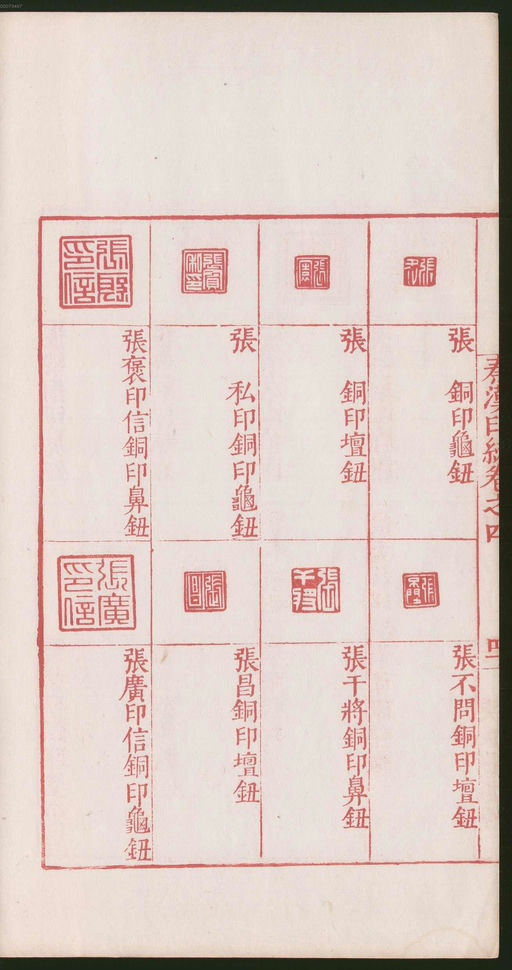 秦漢印統卷之四
張 銅印龜鈕
張 銅印壇鈕
張 私印銅印龜鈕
張褒印信銅印鼻鈕
張不問銅印壇鈕
張干將銅印鼻鈕
張昌銅印壇鈕
張廣印信銅印龜鈕